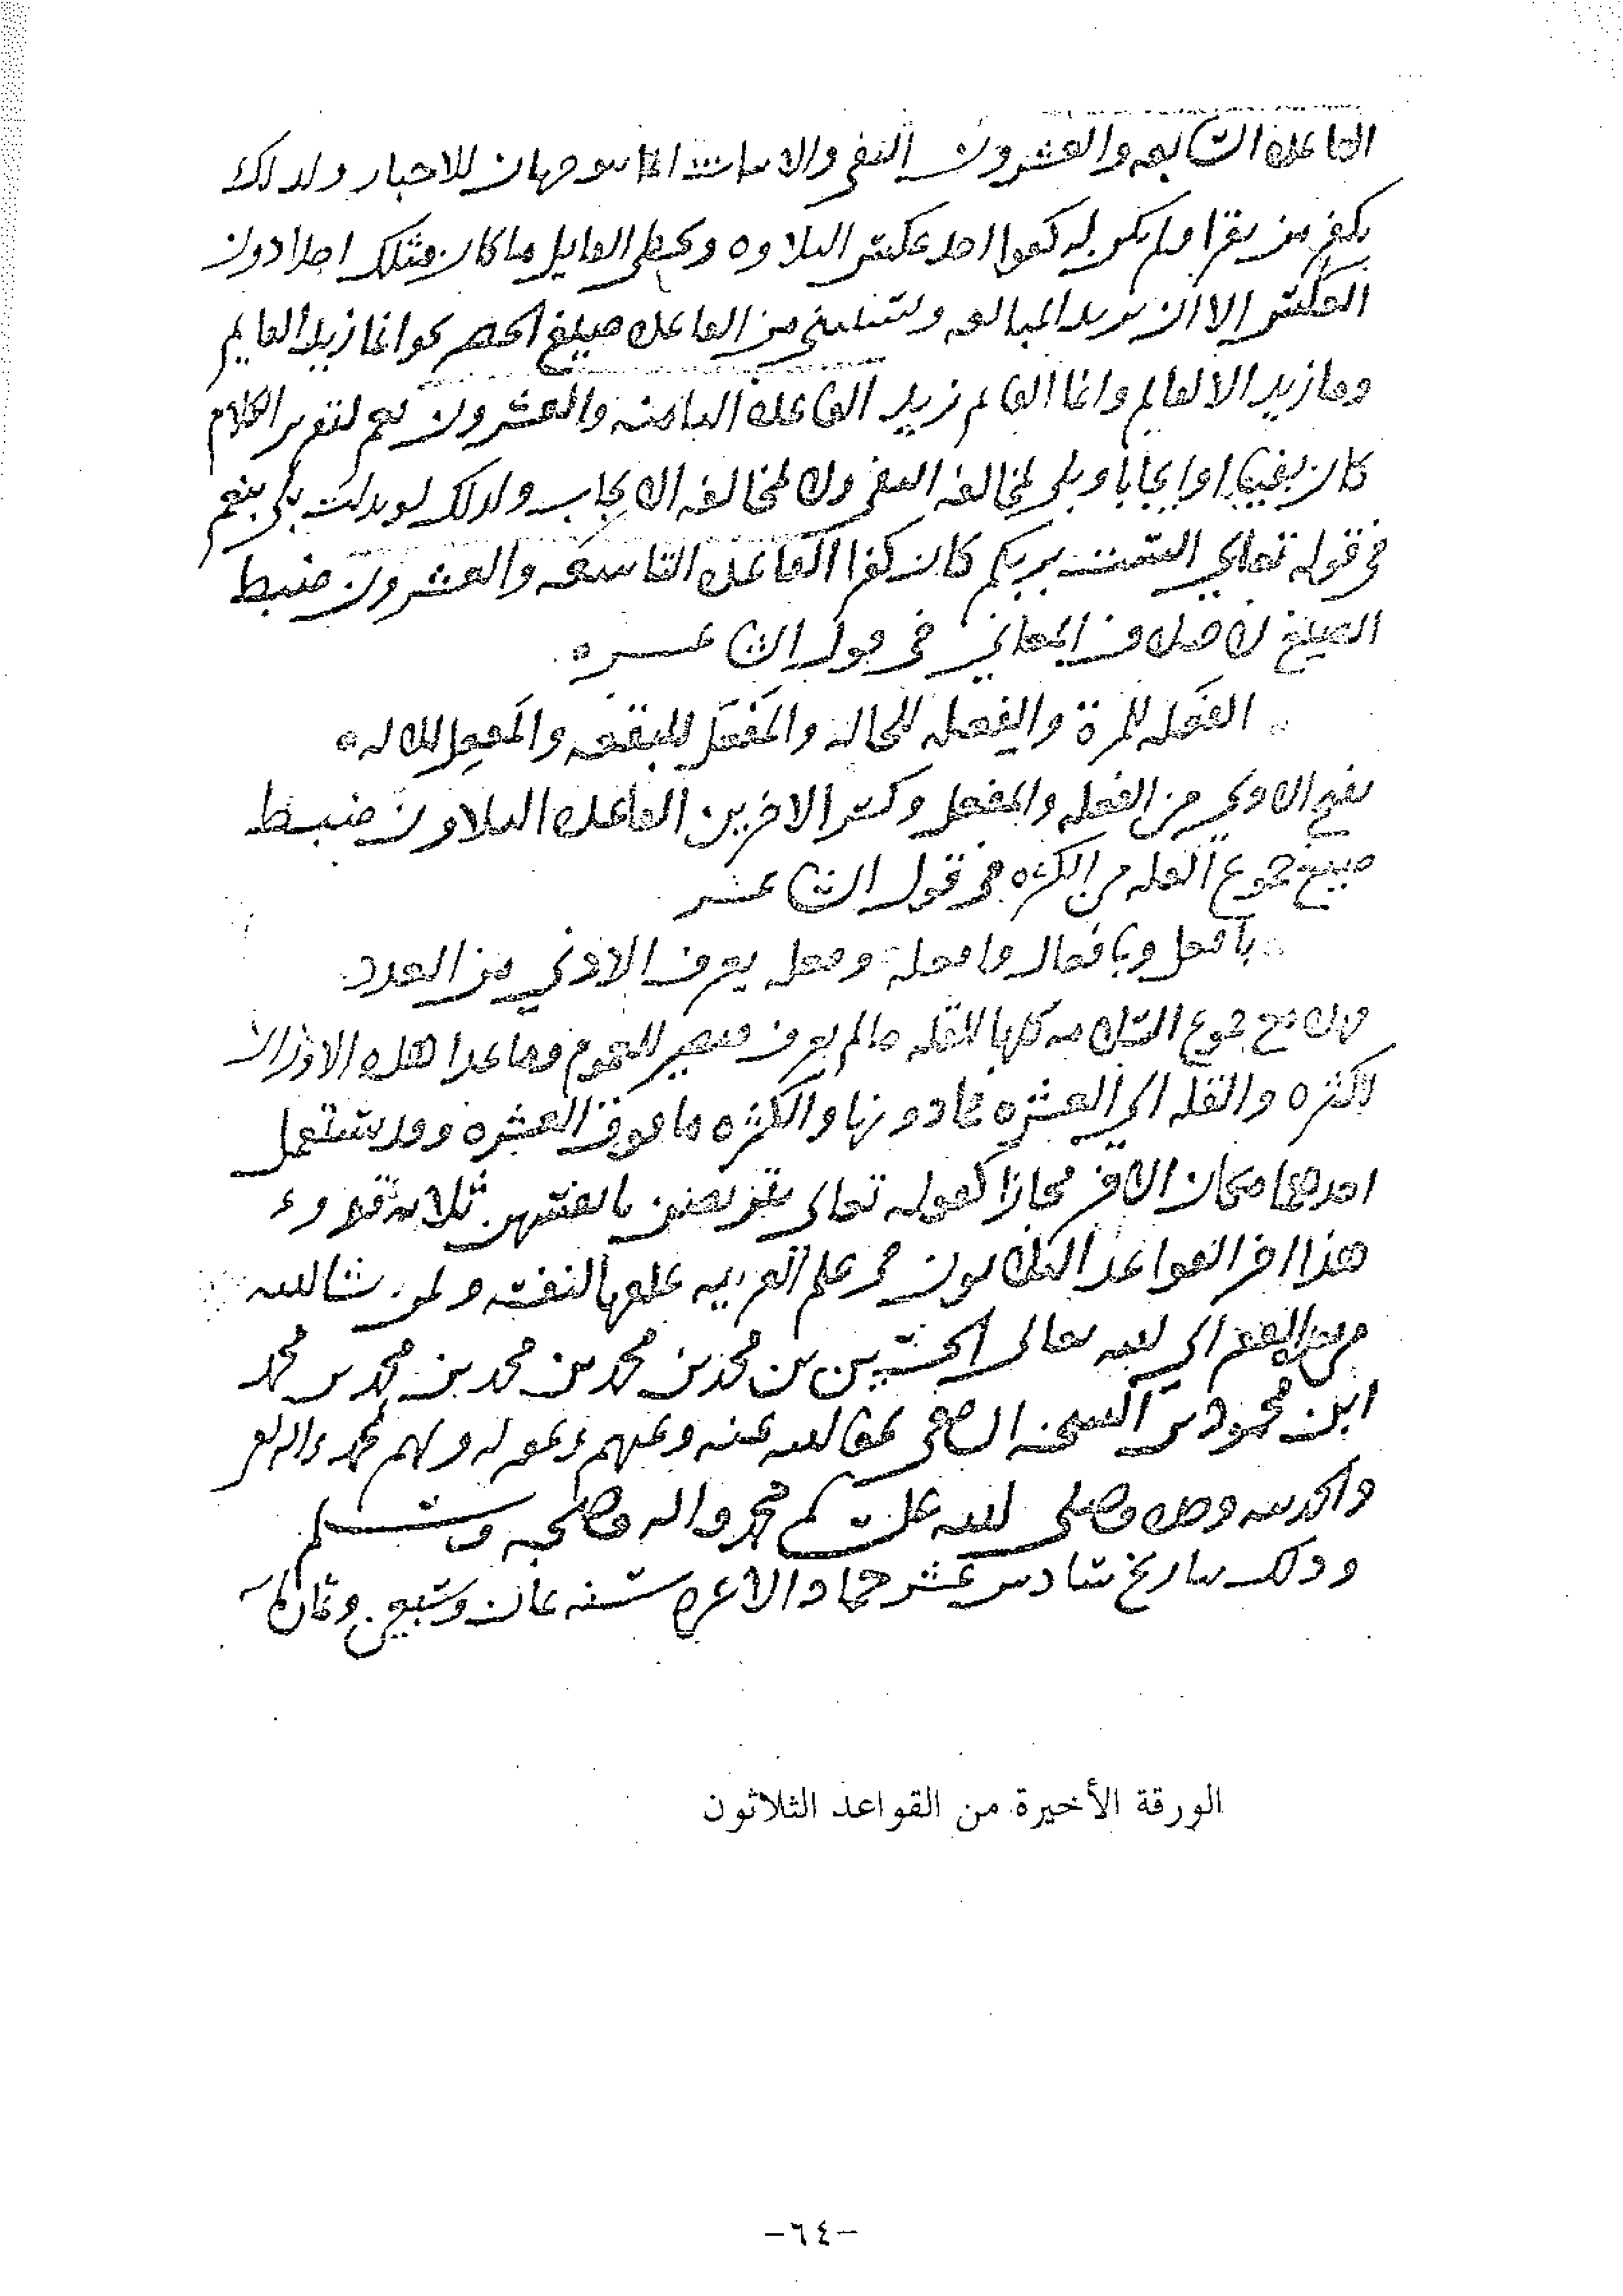 القاعدة السابعة والعشرون النفي والاثبات انما يتوجهان للاخبار ولذلك
يكفر من يقرا ولم يكن له كفوا احد بعكس التلاوة ويخطى القايل ما كان مثلك احدا دون
العكس الا ان يريد المبالغة ويستثنى من القاعدة صيغ الحصر نحو انما زيد القايم
وما زيد الا القايم وانما القايم زيد القاعدة الثامنة والعشرون نعم لتقرير الكلام
كان نفيا او ايجابا وبلى لمخالفة النفي ولا لمخالفة الايجاب ولذلك لو بدلت بلى بنعم
في قوله تعالى الست بربكم كان كفرا القاعدة التاسعة والعشرون ضبط
الصيغ لاختلاف المعاني في قول الشاعر ه
الفَعله للمرة والفِعله للحاله والمَفعَل للبقعه والمِفعل للاله ه
بفتح الاولى من الفعله والمفعل وكسر الاخرين القاعدة الثلاثون ضبط
صيغ جموع القله من الكثره في قول الشاعر
بافعل وبافعال وافعلة وفعلة يعرف الادنى من العدد
جموع السلامه كلها للقله ما لم يعرف فيصير للعموم وما عدا هذه الاوزان
لكثره والقله الى العشره فما دونها والكثره ما فوق العشره وقد يستعمل
احدهما مكان الاخر مجازا كقوله تعالى يتربصن بانفسهن ثلاثة قروء
هذا اخر القواعد الثلاثون في علم العربيه علقها لنفسه ولمن شا الله
من بعده الفقير الى الله تعالى الحسين بن محمد بن محمد بن محمد بن محمد بن محمد
ابن محمود بن الشحنه الشافعي عفا الله عنه وعنهم وغفر له ولهم بمحمد واله
والحمد لله وحده وصلى الله على محمد واله وصحبه وسلم
وذلك بتاريخ سادس عشر جماد الاخره سنه ثمان وسبعين وثمان مائه
الورقة الأخيرة من القواعد الثلاثون
-٦٤-